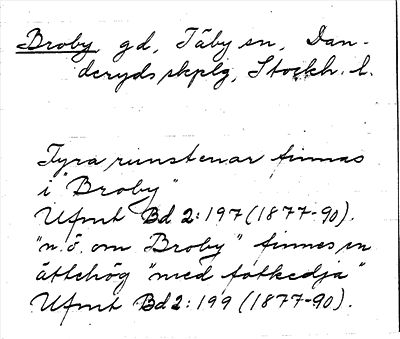 Broby gd, Täby sn, Dan-
deryds skplg, Stockh. l.
Fyra runstenar finnas
i "Broby"
Ufmt Bd 2:197 (1877-90).
"n.ö. om Broby" finnes en
ättehög "med fotkedja"
Ufmt Bd 2:199 (1877-90).